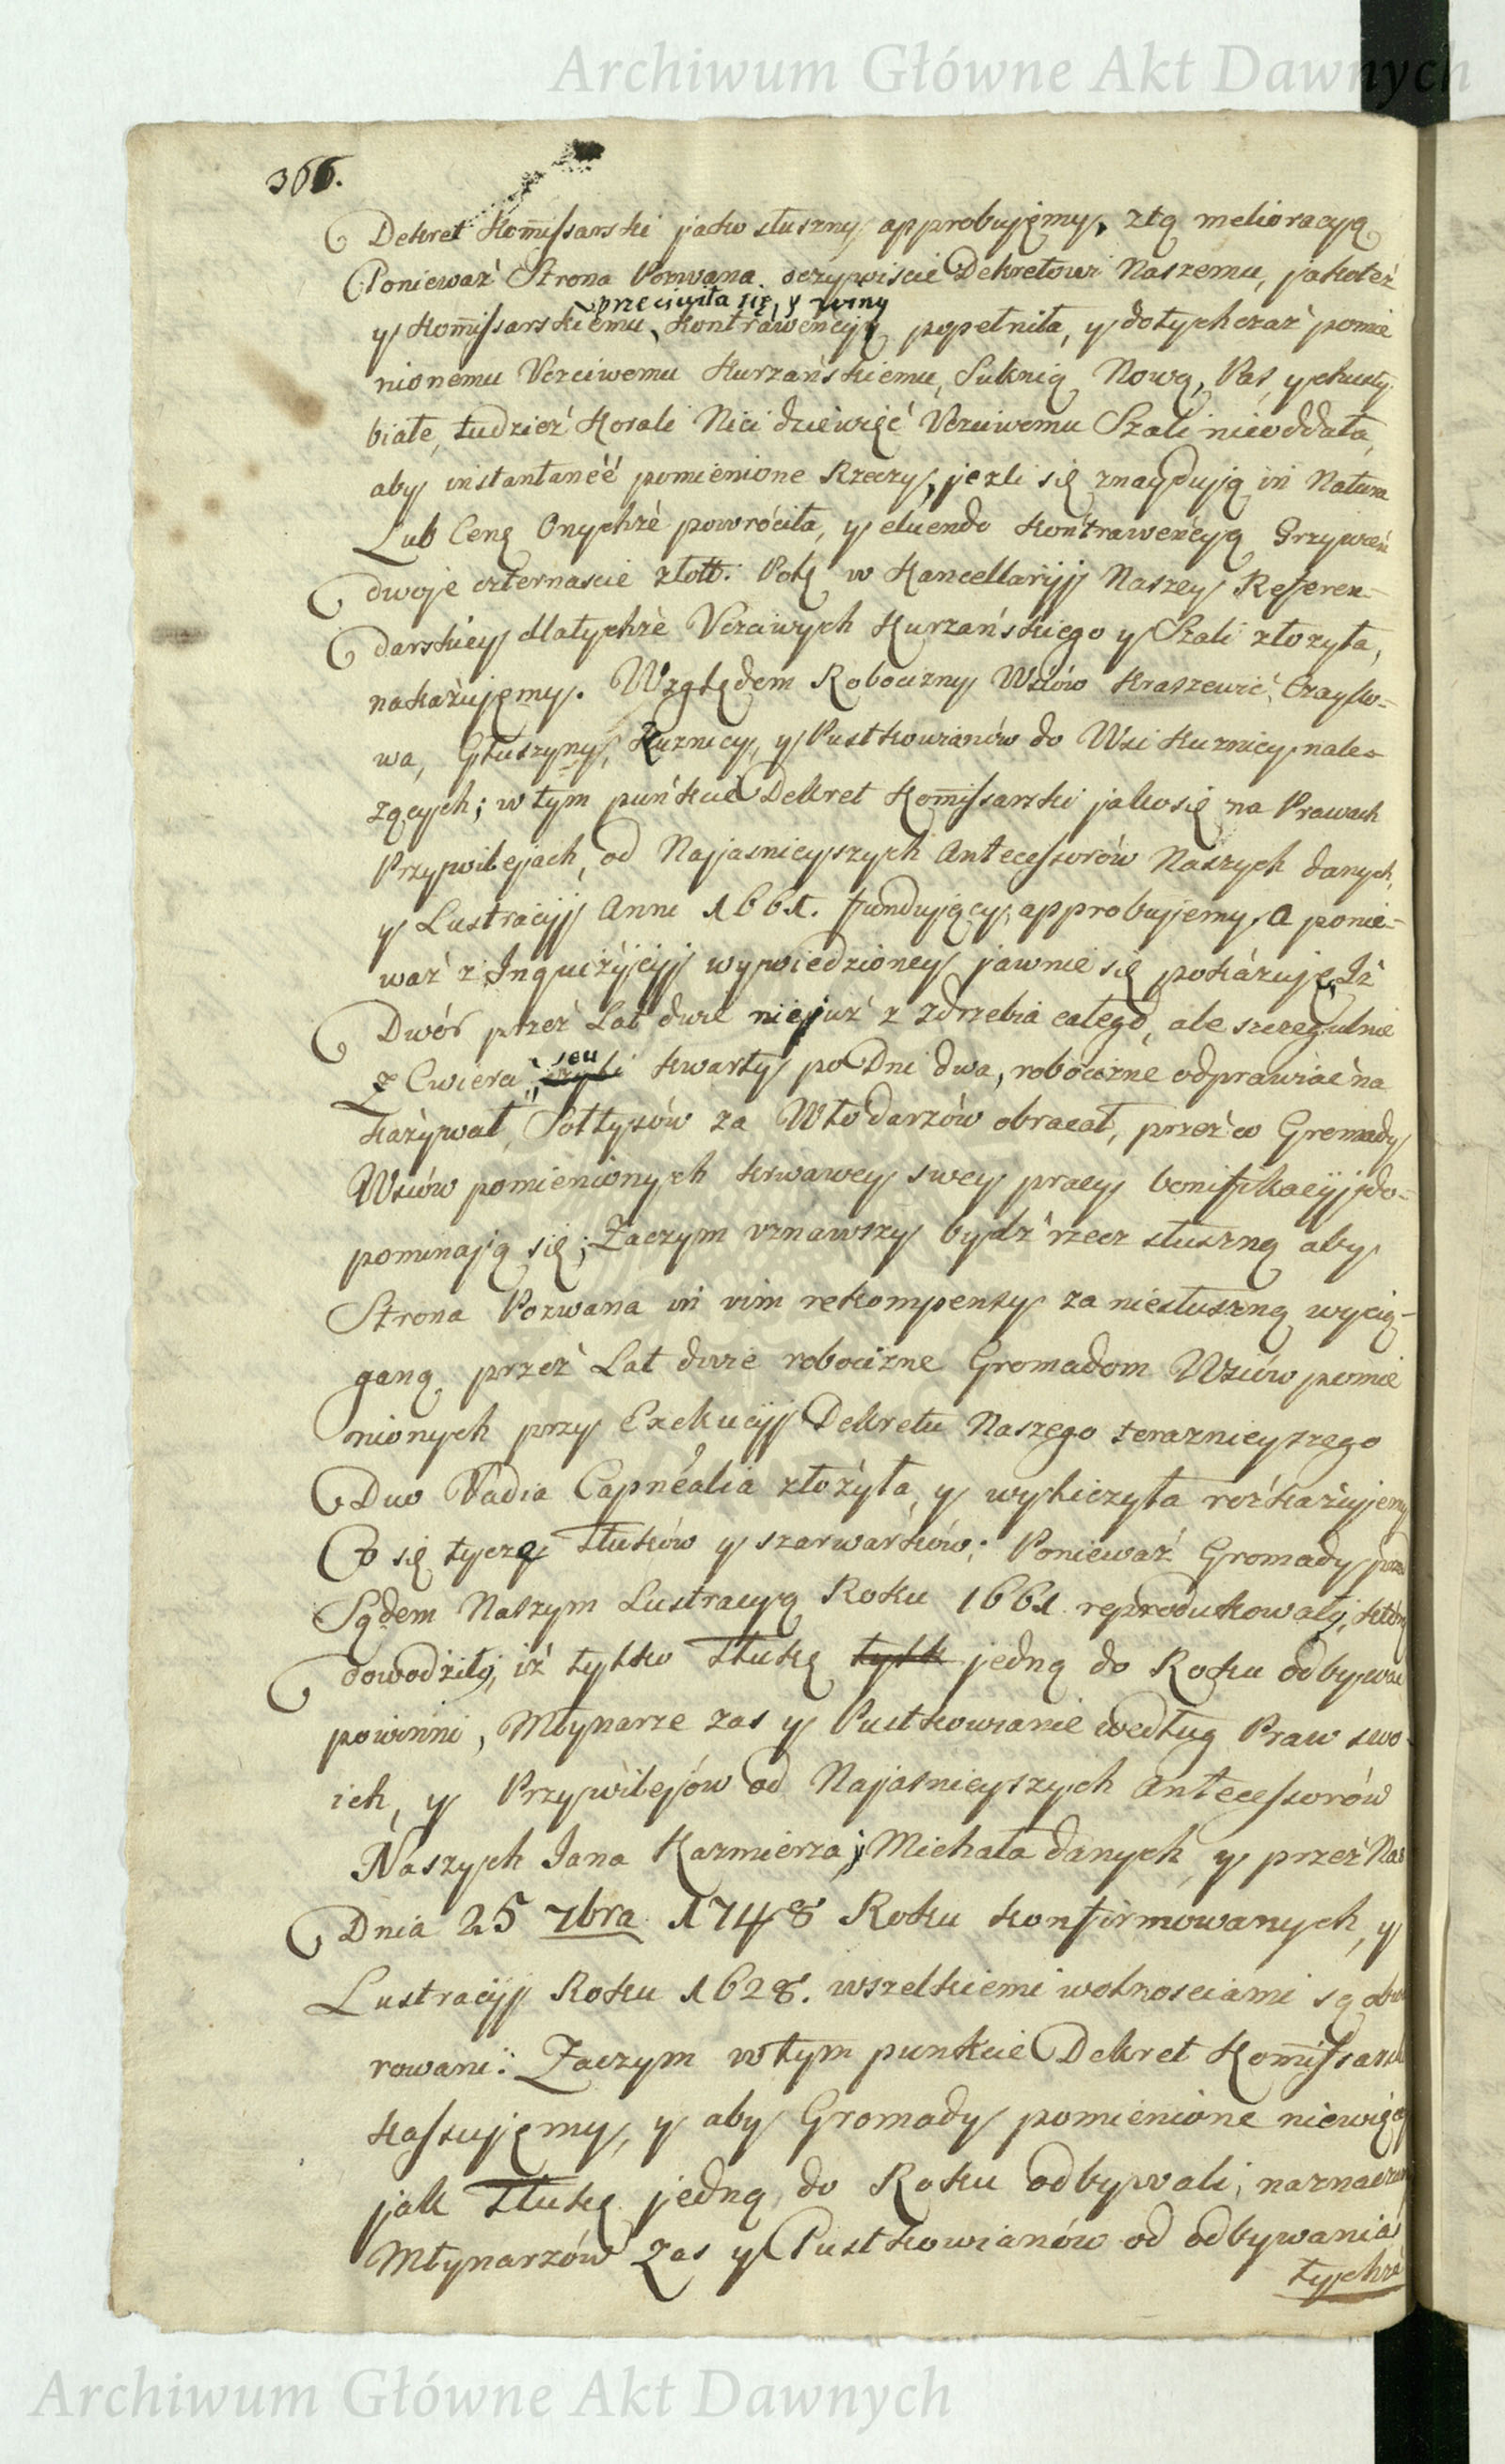 Archiwum Główne Akt Dawnych
366.
Dekret Kom̄issarski jako słuszny approbujęmy, ztą melioracyą
Ponieważ Strona Pozwana oczywiscie Dekretowi Naszemu, jakoteż
sprzeciwiła się, y winy
y Kom̄issarskiemu, Kontrawencyą popełniła, y dotychczaż pomie
nionemu Vczciwemu Kurzańskiemu, Suknią Nową, Pas, y chusty
białe, tudzież Korali Nici dziewięć Vczciwemu Szali nieoddała,
aby instantanéé pomienione Rzeczy, jezli się znaydują in Natura
Lub Cenę Onychże powróciła, y eluendo Kontrawencyą Grzywień
dwoje czternascie złott: Pols w Kancellaryji Naszey Referen-
darskiey dlatychże Vczciwych Kurzańskiego y Szali złozyła,
nakazujęmy. Względem Robocizny Wsiów Kraszewic, Czaysko-
wa, Głuszyny, Kuznicy, y Pustkowianów do Wsi Kuznicy nale-
zących; w tym puńkcie Dekret Kom̄issarski jako się na Prawach
Przywilejach, od Najasnieyszych Antecessorów Naszych danych,
y Lustracyji Anni 1661. fundujący, approbujemy, a ponie-
waż z Inquizycyji wywiedzioney jawnie się pokázuję, Iż
Dwór przeż Lat dwie niejuż z zdrzebia całego, ale szczegulnie
seu
z Cwierci czyli kwarty po Dni dwa, robociznę odprawiać na
kazywał, Sołtysów za Włodarzów obracał, przeż co Gromady
Wsiów pomienionych krwawey swey pracy bonifikacyji do-
pominają się; Zaczym vznawszy bydż rzecz słuszną aby
Strona Pozwana in vim rekompensy za niesłuszną wycią-
ganą przeż Lat dwie robociznę Gromadom Wsiów pomie
nionych przy Exekucyji Dekretu Naszego teraznieyszego
Duo Vadia Capnéalia złożyła, y wyliczyła rozkażujemy
Co się tyczę Stuków y szarwarków; Ponieważ Gromady przed
Sądem Naszym Lustracyą Roku 1661 reprodukowały, którą
dowodziły, iż tylko Stukę tylk jedną do Roku odbywać
powinni, Młynarze zas y Pustkowianie według Praw swo-
ich, y Przywilejów od Najasnieyszych Antecessorów
Naszych Jana Kazmierza, j Michała danych, y przeż Nas
Dnia 25 7bra 1748 Roku konfirmowanych, y
Lustracyji Roku 1628. wszelkiemi wolnosciami są obwa
rowani: Zaczym w tym punkcie Dekret Kom̄issarski
kassujęmy, y aby Gromady pomienione niewięcy
jak Stukę jedną, do Roku odbywali, naznaczamy
Młynarzów Zas y Pustkowianów od odbywania
tychże
Archiwum Główne Akt Dawnych